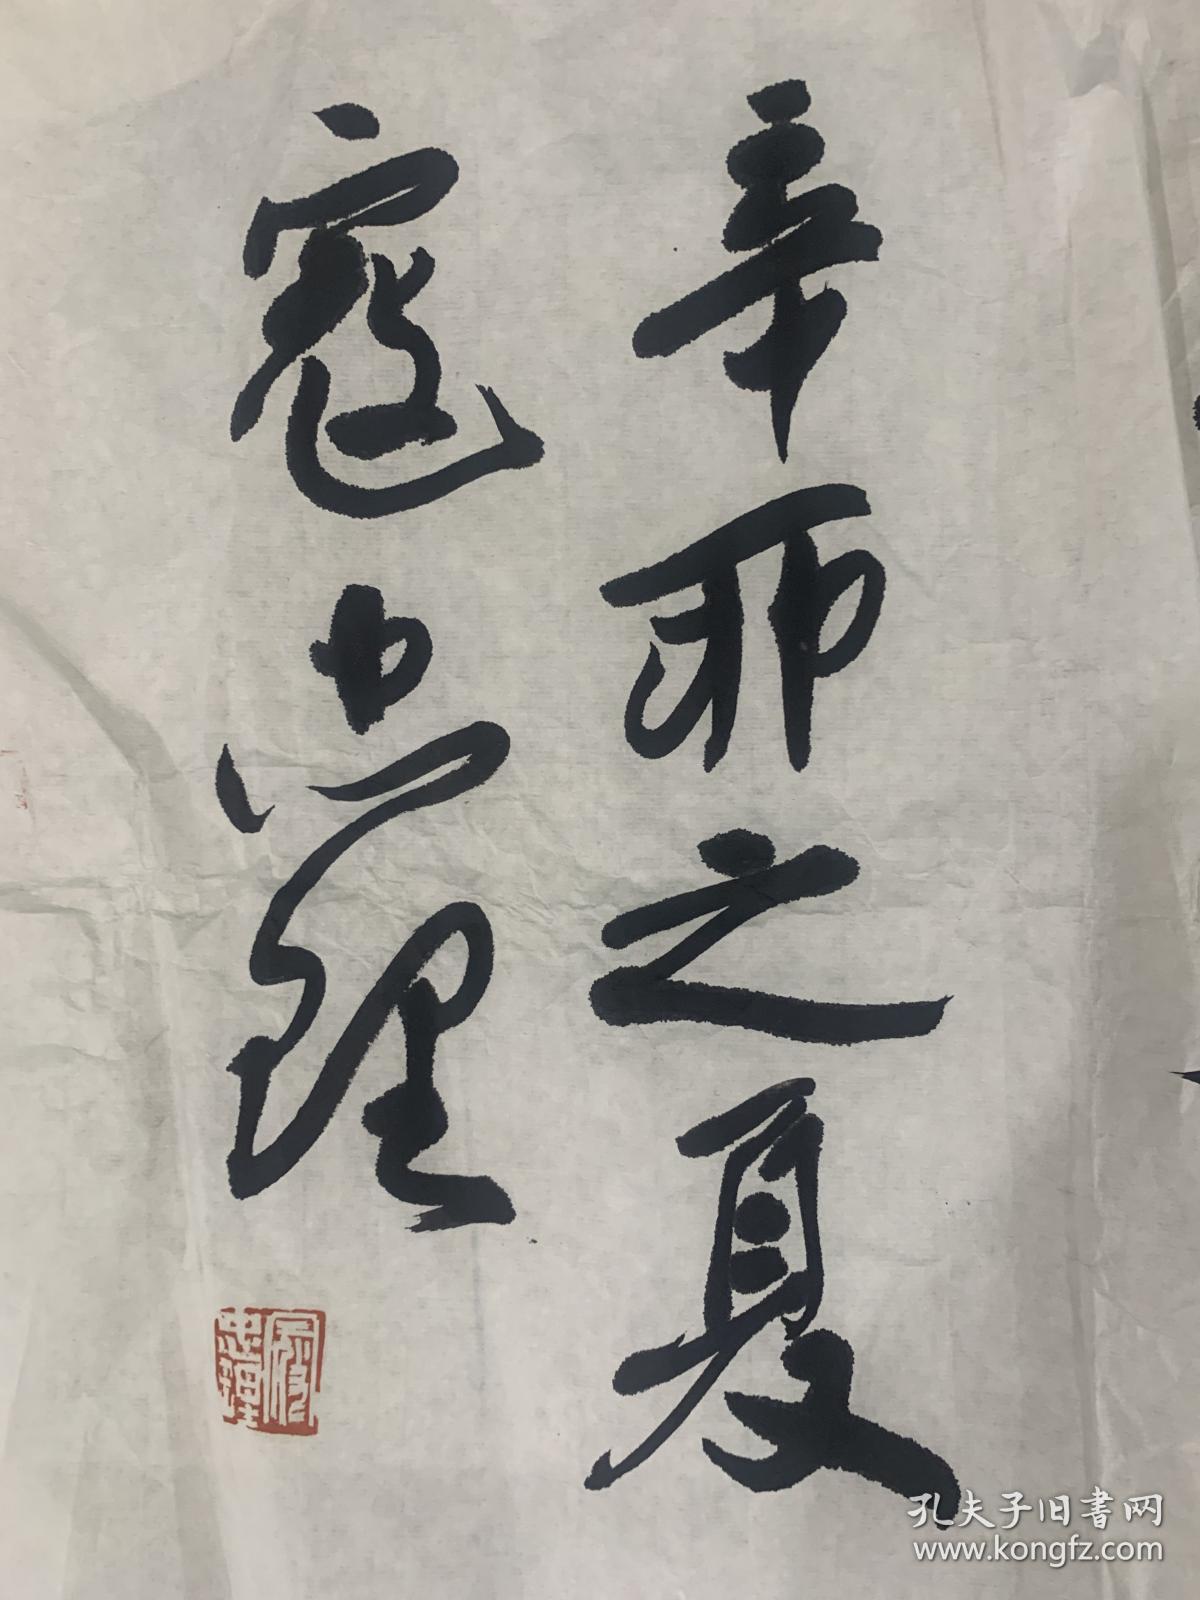 辛卯之夏
寇忠理
寇忠理
孔夫子旧书网
www.kongfz.com